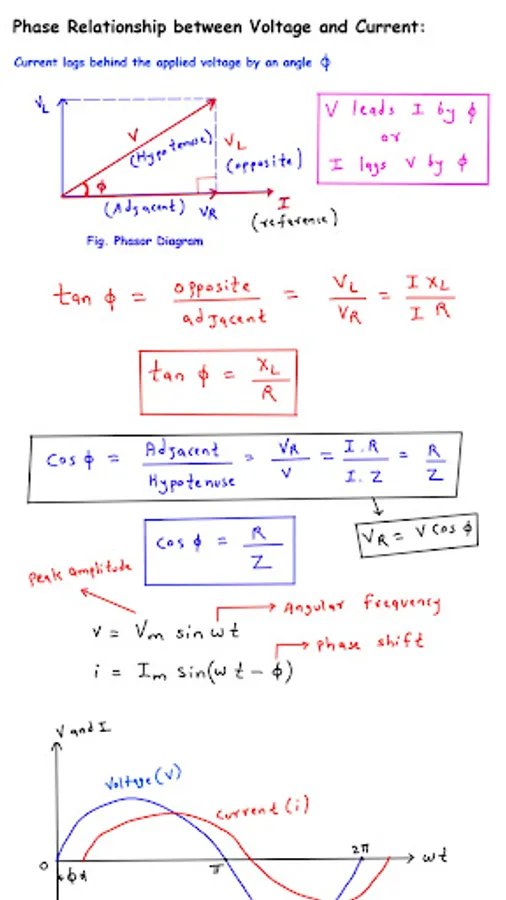 Phase Relationship between Voltage and Current:
Current lags behind the applied voltage by an angle ϕ
VL
V
(Hypotenuse)
VL
(opposite)
ϕ
(Adjacent) VR
I
(reference)
Fig. Phasor Diagram
V leads I by ϕ
or
I lags V by ϕ
tan ϕ = opposite / adjacent = VL / VR = I XL / I R
tan ϕ = XL / R
Cos ϕ = Adjacent / Hypotenuse = VR / V = I.R / I.Z = R / Z
VR = V cos ϕ
Cos ϕ = R / Z
Peak amplitude
Angular frequency
v = Vm sin ωt
Phase shift
i = Im Sin(ωt - ϕ)
V and I
Voltage(V)
Current(i)
0
ϕ
π
2π
ωt